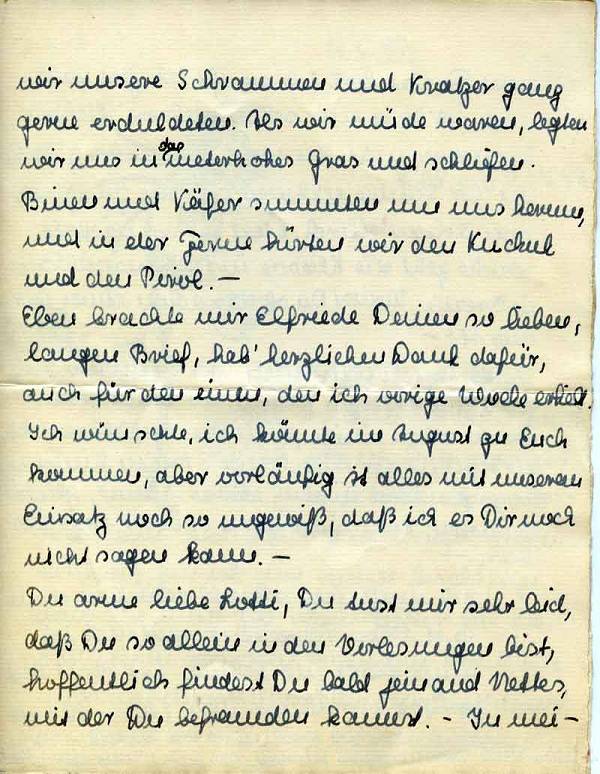 wir unsere Schrammen und Kratzer ganz
gerne erduldeten. Als wir müde waren, legten
wir uns in das meterhohes Gras und schliefen.
Binen und Käfer summten um uns herum,
und in der Ferne hörten wir den Kuckuk
und den Pirol. —
Eben brachte mir Elfriede Deinen so lieben,
langen Brief, hab' herzlichen Dank dafür,
auch für den einen, den ich vorige Woche erhielt.
Ich wünschte, ich könnte im August zu Euch
kommen, aber vorläufig ist alles mit unserem
Einsatz noch so ungewiß, daß ich es Dir noch
nicht sagen kann. —
Du arme liebe Lotti, Du tust mir sehr leid,
daß Du so allein in den Vorlesungen bist,
hoffentlich findest Du bald jemand Nettes,
mit der Du befreunden kannst. - In mei-